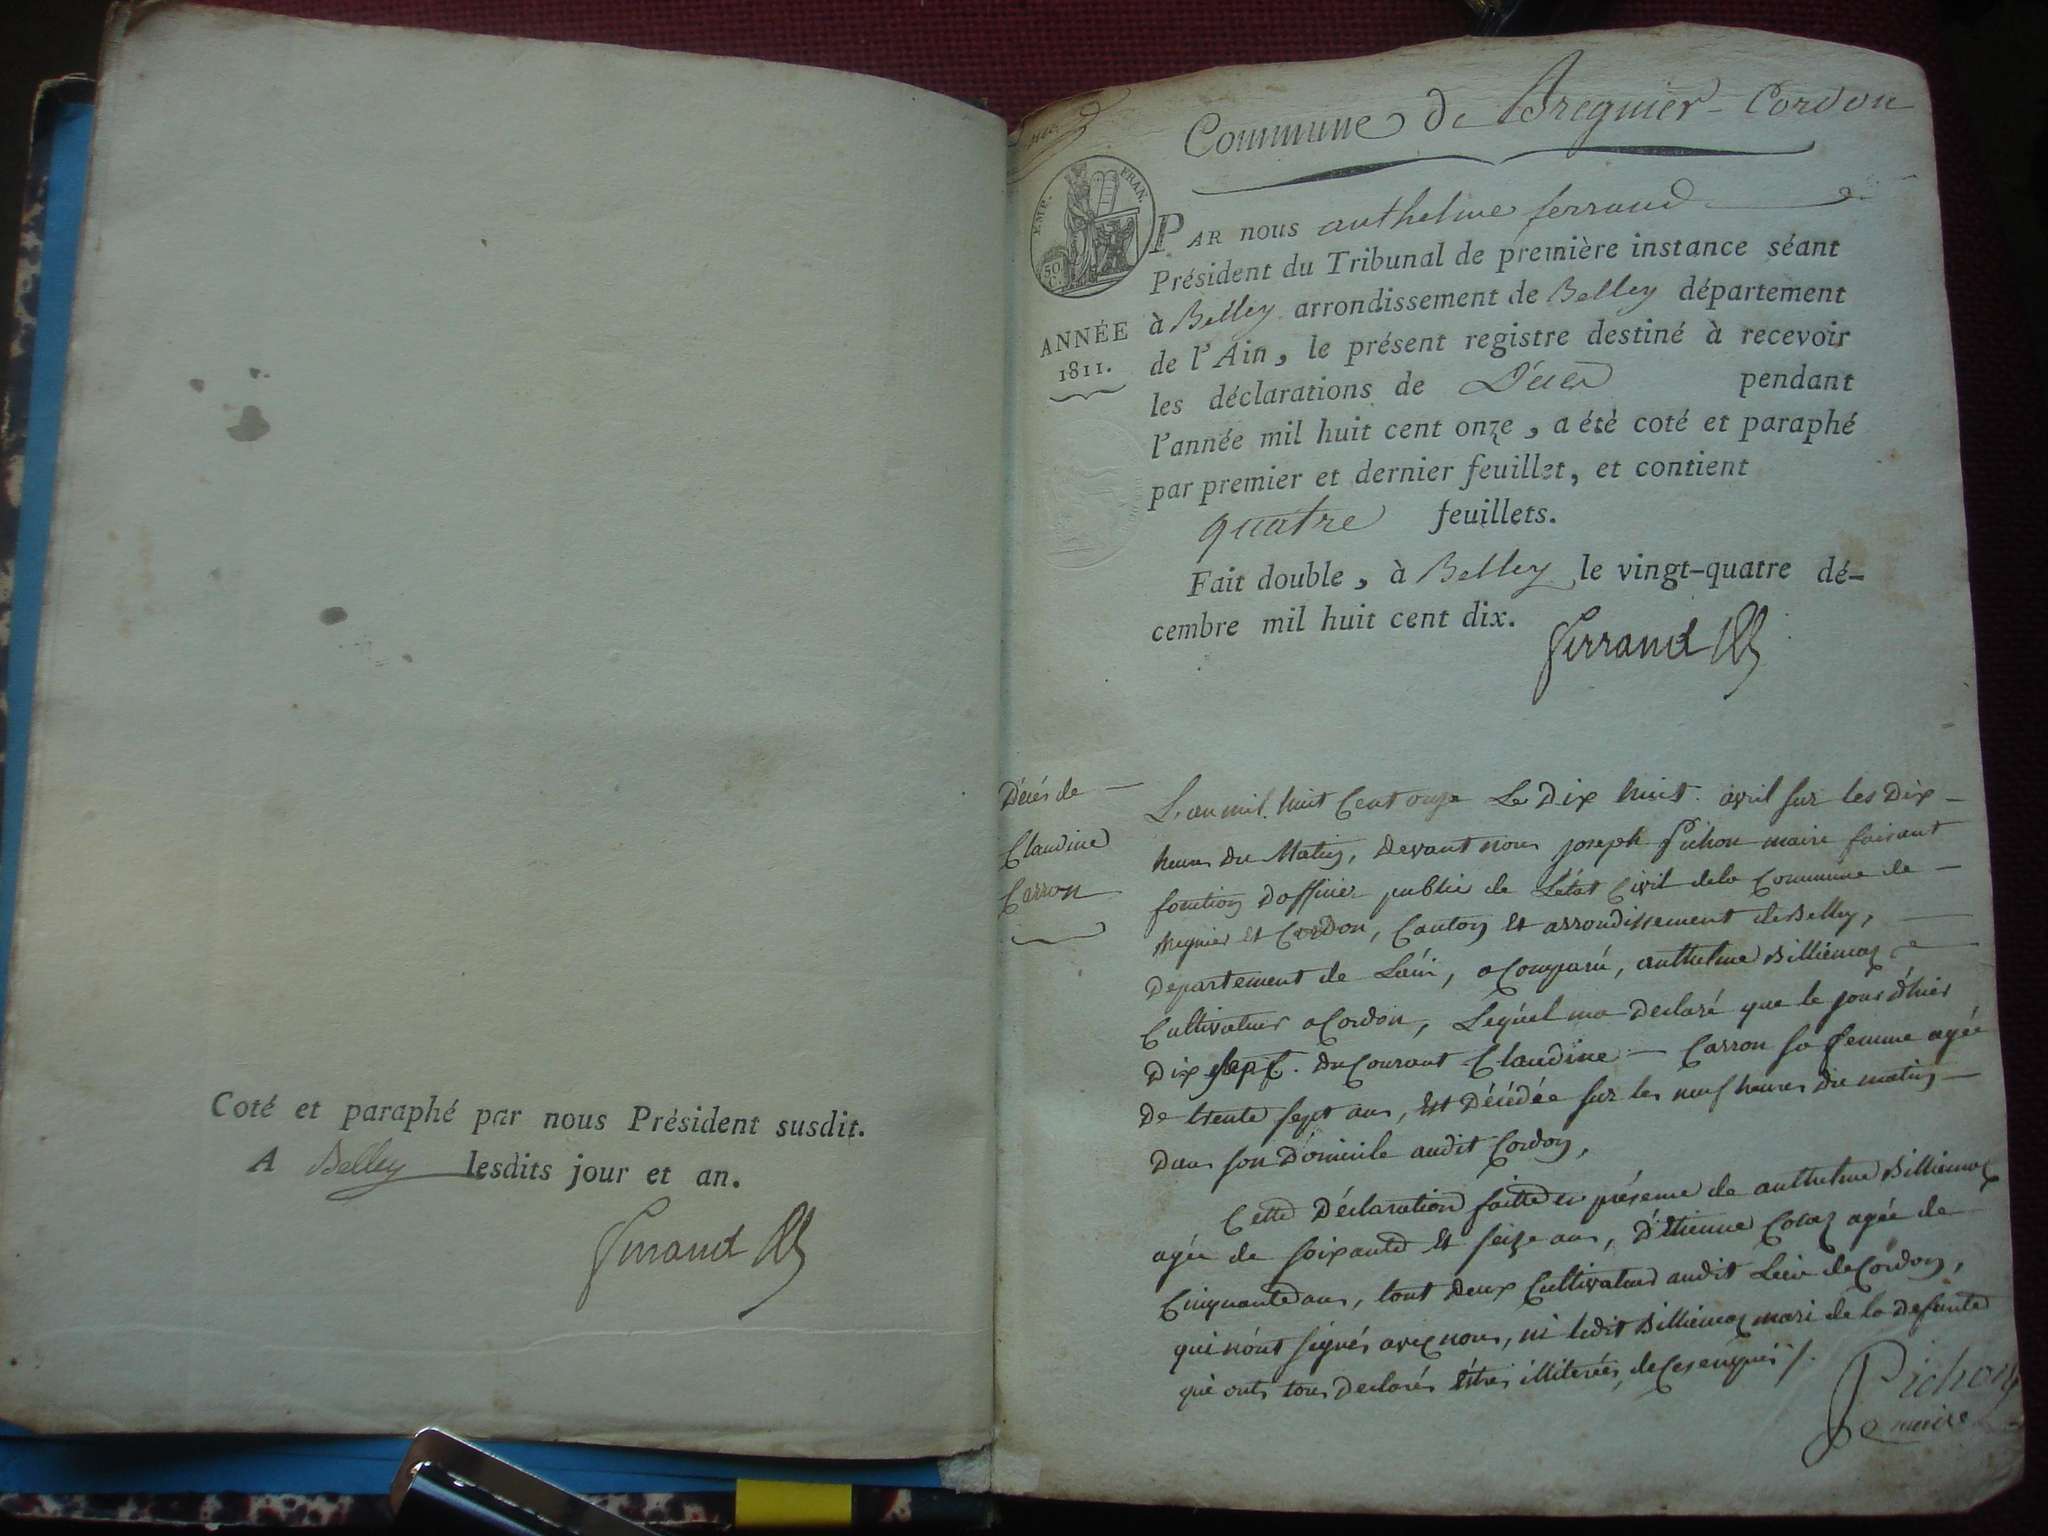 Coté et paraphé par nous Président susdit.
A Belley lesdits jour et an.
Ferrand
Commune de Bregnier-Cordon
EMP. FRAN.
50 C.
ANNÉE
1811.
PAR nous anthelme ferrand
Président du Tribunal de première instance séant
à Belley arrondissement de Belley département
de l'Ain, le présent registre destiné à recevoir
les déclarations de Décès pendant
l'année mil huit cent onze, a été coté et paraphé
par premier et dernier feuillet, et contient
quatre feuillets.
Fait double, à Belley le vingt-quatre dé-
cembre mil huit cent dix.
Ferrand
Décés de
Claudine
Carron
L'an mil huit Cent onze Le Dix huit avril sur les Dix
heures Du Matin, Devant nous joseph Pichon maire faisant
fonction D'officier public de L'état Civil dela Commune de
Bregnier et Cordon, Canton et arrondissement de Belley,
Departement de Lain, a Comparu, anthelme Billiemaz
Cultivateur a Cordon, Lequel ma Declaré que le jour d'hier
Dix sept du Courant Claudine Carron sa femme agée
De trente sept ans, est Décédée sur les neuf heures du matin
Dans son Domicile audit Cordon,
Cette Déclaration faitte en présence de anthelme Billiemaz
agée de soixante et seize ans, D'Etienne Cotaz agée de
Cinquante ans, tout deux Cultivateurs audit Lieu de Cordon,
qui n'ont signés avec nous, ni ledit Billiemaz mari de la Defunte
qui ont tous Declarés Etres illiterés, de Ces enquis /.
Pichon
maire